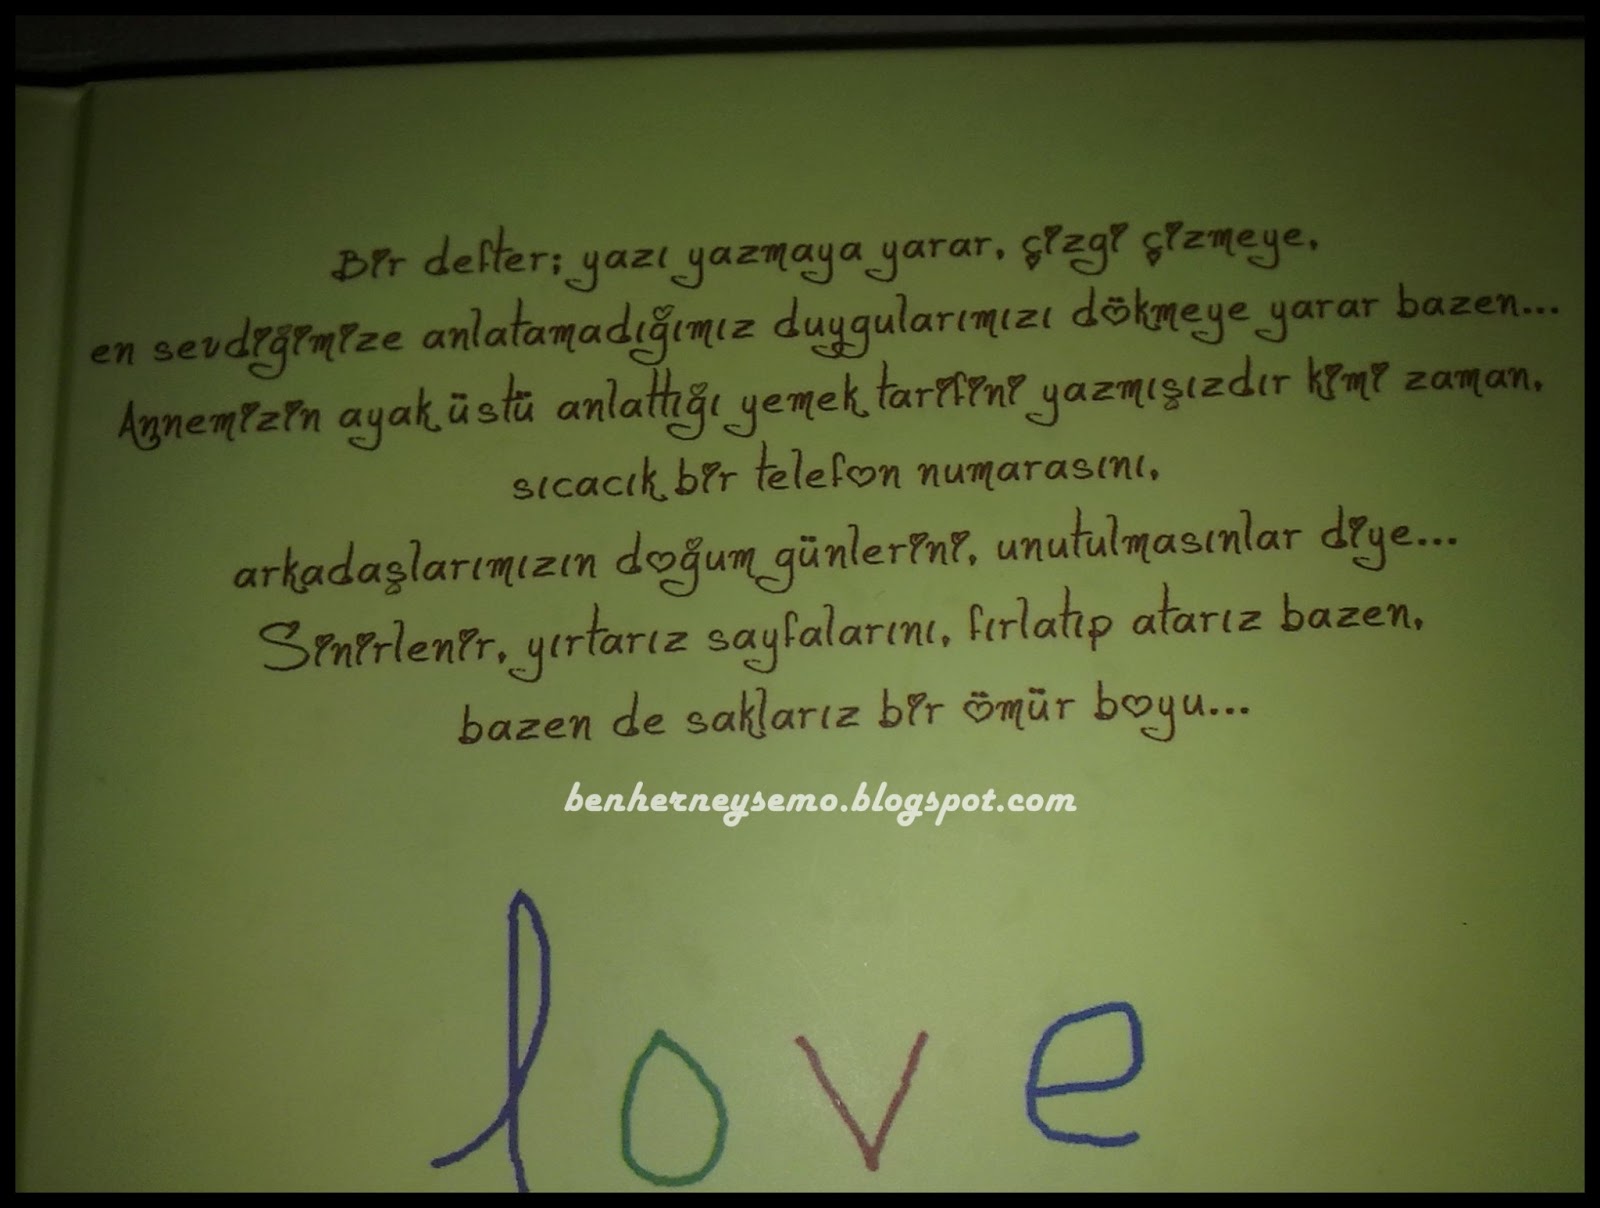 Bir defter; yazı yazmaya yarar, çizgi çizmeye,
en sevdiğimize anlatamadığımız duygularımızı dökmeye yarar bazen...
Annemizin ayak üstü anlattığı yemek tarifini yazmışızdır kimi zaman,
sıcacık bir telefon numarasını,
arkadaşlarımızın doğum günlerini, unutulmasınlar diye...
Sinirlenir, yırtarız sayfalarını, fırlatıp atarız bazen,
bazen de saklarız bir ömür boyu...
benherneysemo.blogspot.com
love